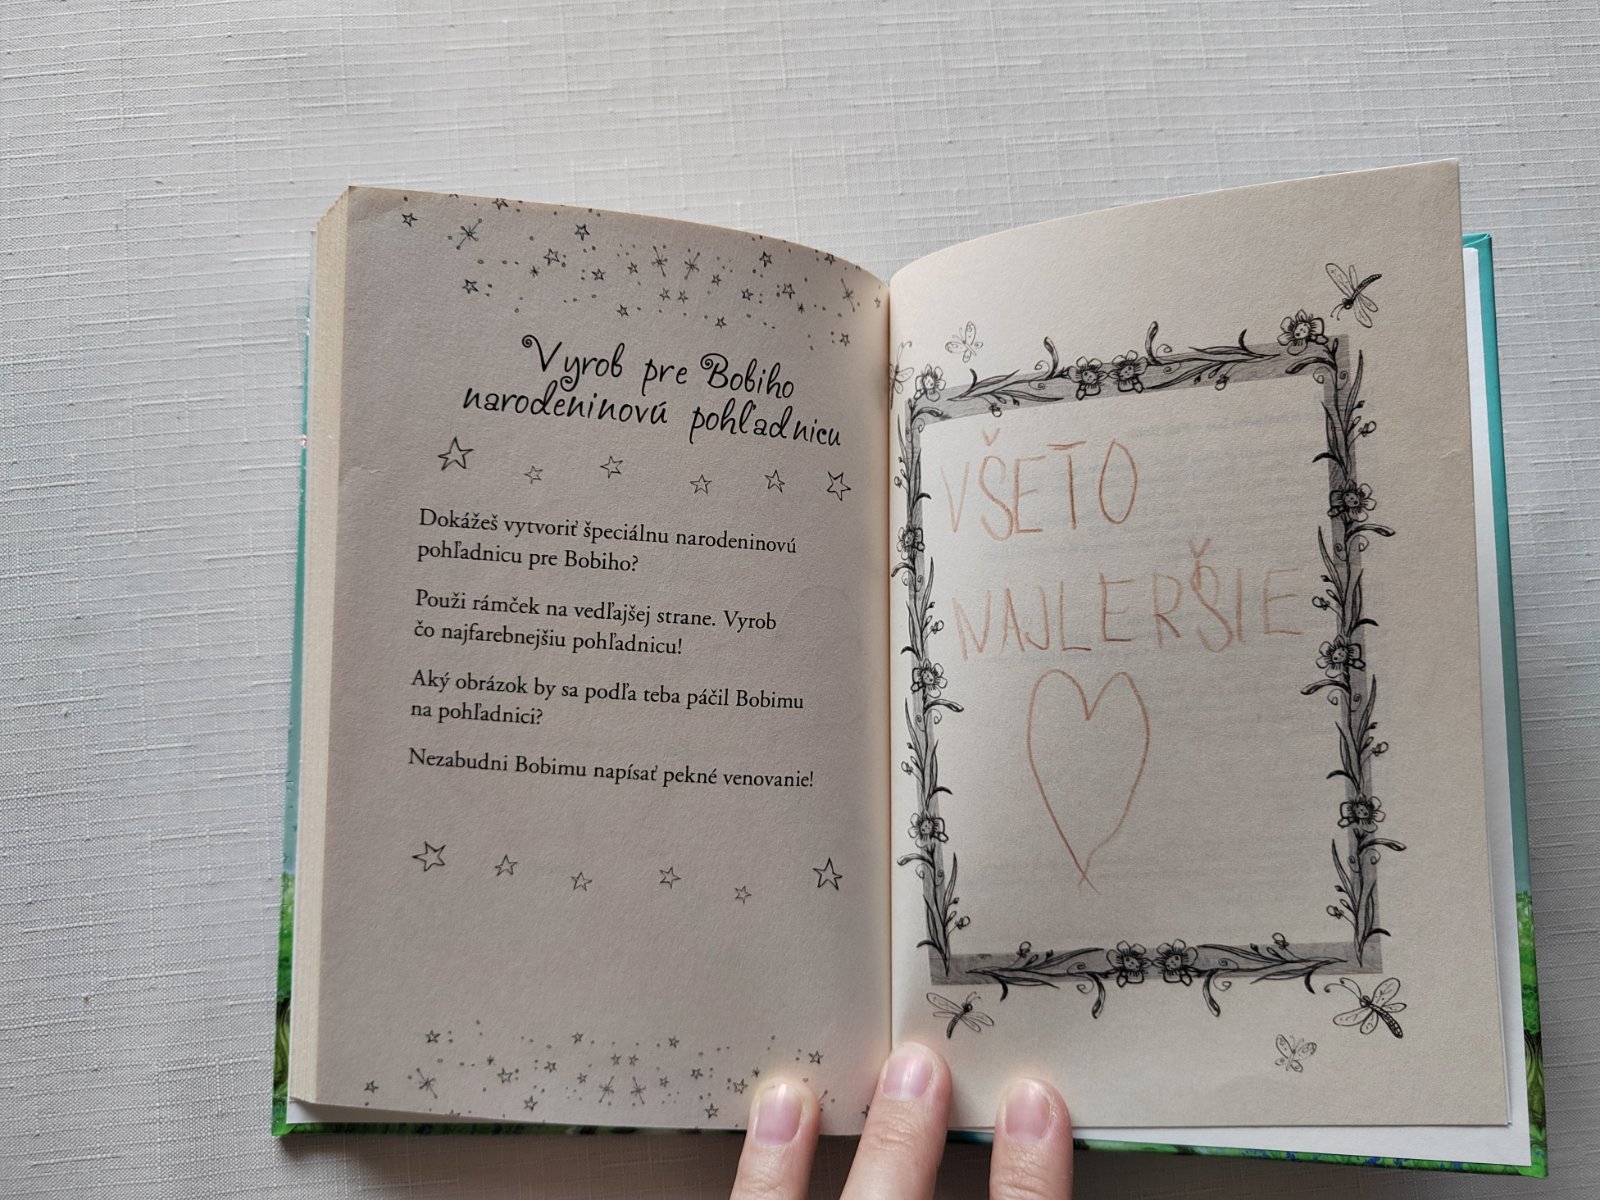 Vyrob pre Bobiho
narodeninovú pohľadnicu
Dokážeš vytvoriť špeciálnu narodeninovú
pohľadnicu pre Bobiho?
Použi rámček na vedľajšej strane. Vyrob
čo najfarebnejšiu pohľadnicu!
Aký obrázok by sa podľa teba páčil Bobimu
na pohľadnici?
Nezabudni Bobimu napísať pekné venovanie!
VŠETO
NAJLERŠIE